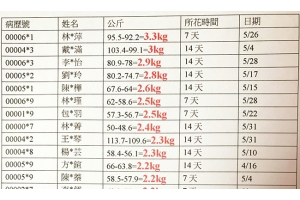 病歷號 姓名 公斤 所花時間 日期
00006*1 林*萍 95.5-92.2=3.3kg 7 天 5/26
00004*3 戴*滿 103.4-99.1=3kg 14 天 5/4
00006*3 李*怡 80.9-78=2.9kg 14 天 5/28
00005*2 劉*玲 80.2-74.7=2.8kg 14 天 5/17
00005*1 陳*樺 67.6-64=2.6kg 14 天 5/21
00006*9 林*瑾 62-58.6=2.5kg 7 天 5/28
00001*9 包*羽 57.3-56.7=2.5kg 7 天 5/22
00000*7 林*菁 50-48.6=2.4kg 14 天 5/31
00004*2 王*琴 113.7-109.6=2.3kg 14 天 5/31
00004*8 楊*芸 58.4-56.1=2.3kg 14 天 5/10
00005*9 方*諠 66-63.8=2.2kg 14 天 4/16
00005*9 陳*蓁 58.5-57.9=2.2kg 7 天 5/4